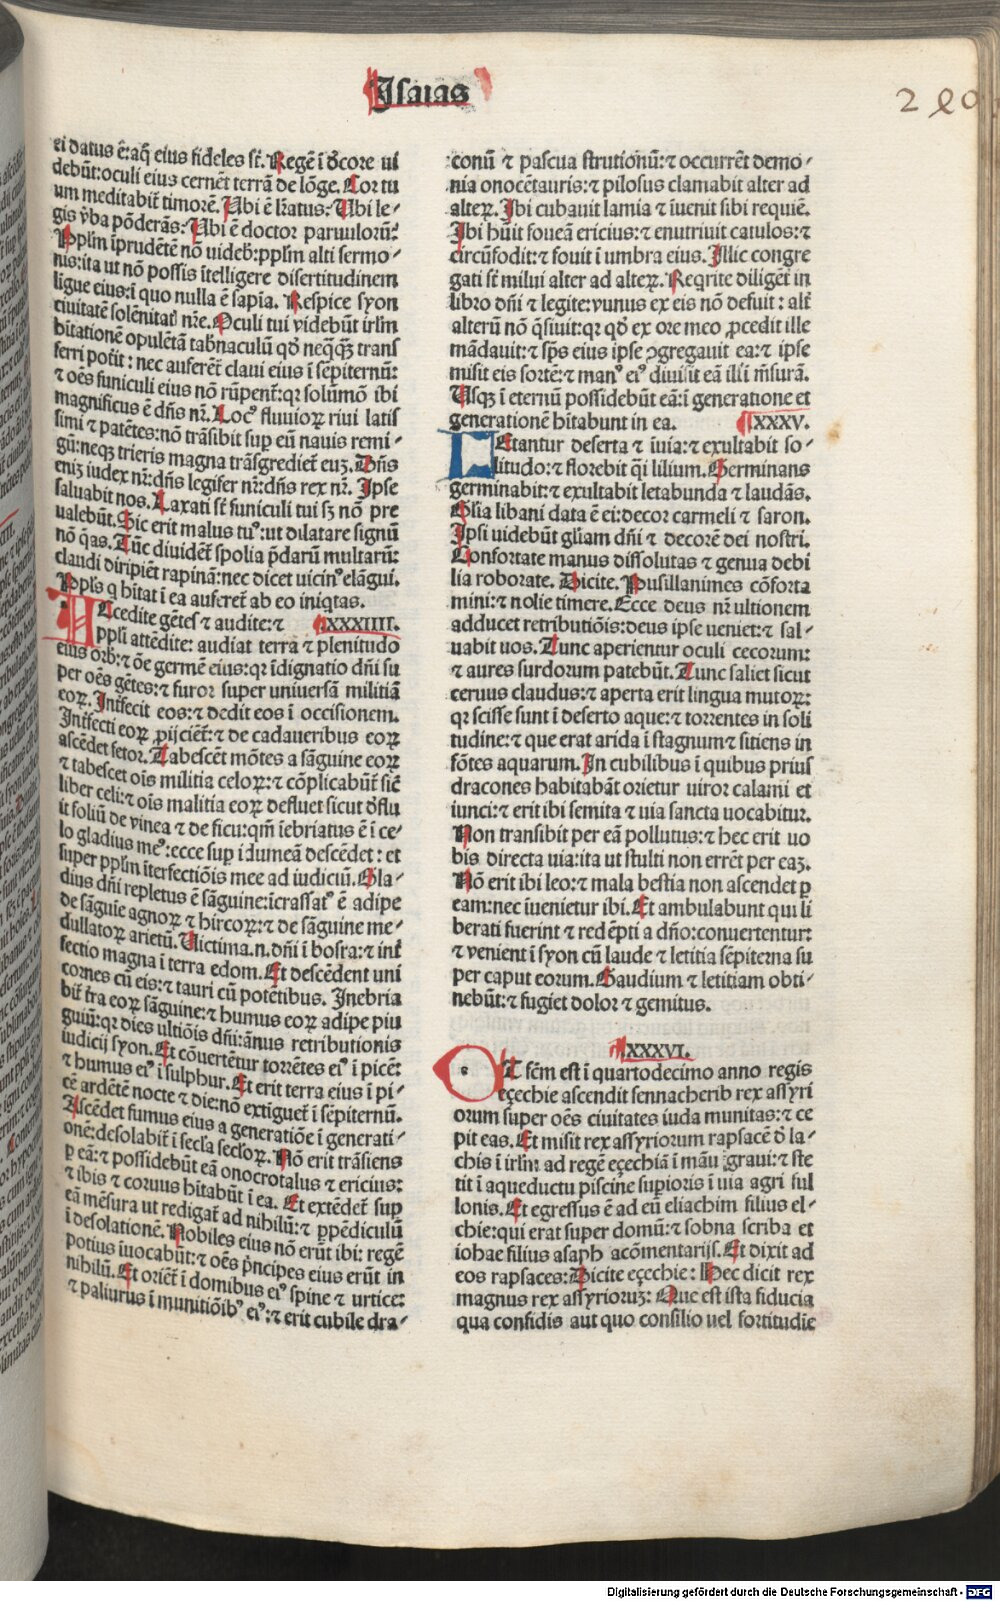 Isaias
280
ei datus ē: aq̄ eius fideles st̄. Regē ī d̄core ui
debūt: oculi eius cernēt terrā de lōge. Cor tu
um meditabit̄ timorē. Ubi ē lr̄atus: Ubi le-
gis v̄ba pōderās: Ubi ē doctor paruulorū:
Ppl̄m īprudētē nō uideb: ppl̄m alti sermo-
nis: ita ut nō possis ītelligere disertitudinem
ligue eius: ī quo nulla ē sapīa. Respice syon
ciuitatē solēnitat) nr̄e. Oculi tui videbūt irl̄m
hītationē opulētā tabn̄aculū qd̄ neq̄q̄ꝫ trans
ferri potīt: nec auferēt clauī eius ī sēpiternū:
⁊ oēs funiculi eius nō rūpent̄: qr solūmō ibi
magnificus ē dn̄s nr̄. Locꝰ fluuioꝝ riui latis
simi ⁊ patētes: nō trāsibit sup eū nauis remi-
gū: neqꝫ trieris magna trāsgrediet̄ euꝫ. Dn̄s
eniꝫ iudex nr̄: dn̄s legifer nr̄: dn̄s rex nr̄. Ipse
saluabit nos. Laxati st̄ funiculi tui sꝫ nō pre
ualebūt. Sic erit malus tuꝰ: ut dilatare signū
nō q̄as. Tūc diuidēt̄ spolia p̄darū multarū:
claudi diripiēt rapinā: nec dicet uicinꝰ elāgui.
Ppl̄s q hītat ī ea auferet̄ ab eo iniqtas.
ACcedite gētes ⁊ audite: ⁊ XXXIIII.
ppl̄i attēdite: audiat terra ⁊ plenitudo
eius orb: ⁊ ōe germē eius: qr īdignatio dn̄i su
per oēs gētes: ⁊ furor super uniuersā militiā
eoꝝ. Int̄fecit eos: ⁊ dedit eos ī occisionem.
Int̄fecti eoꝝ ꝓijciēt̄: ⁊ de cadaueribus eoꝝ
ascēdet fetor. Tabescēt mōtes a sāguine eoꝝ
⁊ tabescet oīs militia celoꝝ: ⁊ cōplicabūt̄ sic̄
liber celi: ⁊ oīs malitia eoꝝ defluet sicut d̄flu
it foliū de vinea ⁊ de ficu: qm̄ īebriatus ē ī ce-
lo gladius meꝰ: ecce sup īdumeā descēdet: et
super ppl̄m īterfectiōis mee ad iudiciū. Gla-
dius dn̄i repletus ē sāguine: icrassatꝰ ē adipe
de sāguīe agnoꝝ ⁊ hircoꝝ: ⁊ de sāguine me-
dullatoꝝ arietū. Uictima.n. dn̄i ī bosra: ⁊ int̄
fectio magna ī terra edom. Et descēdent uni
cornes cū eis: ⁊ tauri cū potētibus. Inebria
bit̄ t̄ra eoꝝ sāguine: ⁊ humus eoꝝ adipe piu
guiū: qr dies ultiōis dn̄i: ānus retributionis
iudicij syon. Et cōuertētur torrētes eiꝰ ī picē:
⁊ humus eiꝰ ī sulphur. Et erit terra eius ī pi-
cē ardētē nocte ⁊ die: nō extiguet̄ ī sēpiternū.
Ascēdet fumus eius a generatiōe ī generati-
onē: desolabit̄ ī secl̄a secl̄oꝝ. Nō erit trāsiens
p eā: ⁊ possidebūt eā onocrotalus ⁊ ericius:
⁊ ibis ⁊ coruus hītabūt ī ea. Et extēdet̄ sup
eā mēsura ut redigat̄ ad nihilū: ⁊ ppēdiculū
ī desolationē. Nobiles eius nō erūt ibi: regē
potius īuocabūt: ⁊ oēs p̄ncipes eius erūt in
nihilū. Et oriēt̄ ī domibus eiꝰ spine ⁊ urtice:
⁊ paliurus ī munitiōibꝰ eiꝰ: ⁊ erit cubile dra-
conū ⁊ pascua strutionū: ⁊ occurrēt demo-
nia onocētauris: ⁊ pilosus clamabit alter ad
alteꝝ. Ibi cubauit lamia ⁊ īuenit sibi requiē.
Ibi hūit foueā ericius: ⁊ enutriuit catulos: ⁊
circūfodit: ⁊ fouit ī umbra eius. Illic congre
gati st̄ milui alter ad alteꝝ. Reqrite diligēt̄ in
libro dn̄i ⁊ legite: vnus ex eis nō defuit: alt̄
alterū nō q̄siuit: qr qd̄ ex ore meo ꝓcedit ille
mādauit: ⁊ sp̄s eius ipse ꝯgregauit ea: ⁊ ipse
misit eis sortē: ⁊ manꝰ eiꝰ diuisit eā illī m̄surā.
Usqꝫ ī eternū possidebūt eā: ī generatione et
generationē hītabunt in ea. XXXV.
LEtantur deserta ⁊ īuia: ⁊ exultabit so-
litudo: ⁊ florebit q̄i lilium. Germinans
germinabit: ⁊ exultabit letabunda ⁊ laudās.
Gl̄ia libani data ē ei: decor carmeli ⁊ saron.
Ipsi uidebūt gl̄iam dn̄i ⁊ decorē dei nostri.
Confortate manus dissolutas ⁊ genua debi
lia roborate. Dicite. Pusillanimes cōforta
mini: ⁊ nolie timere. Ecce deus nr̄ ultionem
adducet retributiōis: deus ipse ueniet: ⁊ sal-
uabit uos. Tunc aperientur oculi cecorum:
⁊ aures surdorum patebūt. Tunc saliet sicut
ceruus claudus: ⁊ aperta erit lingua mutoꝝ:
qr scisse sunt ī deserto aque: ⁊ torrentes in soli
tudine: ⁊ que erat arida ī stagnum ⁊ sitiens in
fōtes aquarum. In cubilibus ī quibus prius
dracones habitabāt orietur uiror calami et
iunci: ⁊ erit ibi semita ⁊ uia sancta uocabitur.
Non transibit per eā pollutus: ⁊ hec erit uo
bis directa uia: ita ut stulti non errēt per eaꝫ.
Nō erit ibi leo: ⁊ mala bestia non ascendet p
eam: nec īuenietur ibi. Et ambulabunt qui li
berati fuerint ⁊ redēpti a dn̄o: conuertentur:
⁊ venient ī syon cū laude ⁊ letitia sēpiterna su
per caput eorum. Gaudium ⁊ letitiam obti-
nebūt: ⁊ fugiet dolor ⁊ gemitus.
XXXVI.
OT fcm̄ est ī quartodecimo anno regis
eçechie ascendit sennacherib rex assyri
orum super oēs ciuitates iuda munitas: ⁊ ce
pit eas. Et misit rex assyriorum rapsacē d̄ la-
chis ī irl̄m ad regē eçechiā ī māu graui: ⁊ ste
tit ī aqueductu piscine supioris ī uia agri ful
lonis. Et egressus ē ad eū eliachim filius el-
chie: qui erat super domū: ⁊ sobna scriba et
iohae filius asaph acōmentarijs. Et dixit ad
eos rapsaces: Dicite eçechie: Hec dicit rex
magnus rex assyrioruꝫ: Que est ista fiducia
qua confidis aut quo consilio uel fortitudie
Digitalisierung gefördert durch die Deutsche Forschungsgemeinschaft - DFG